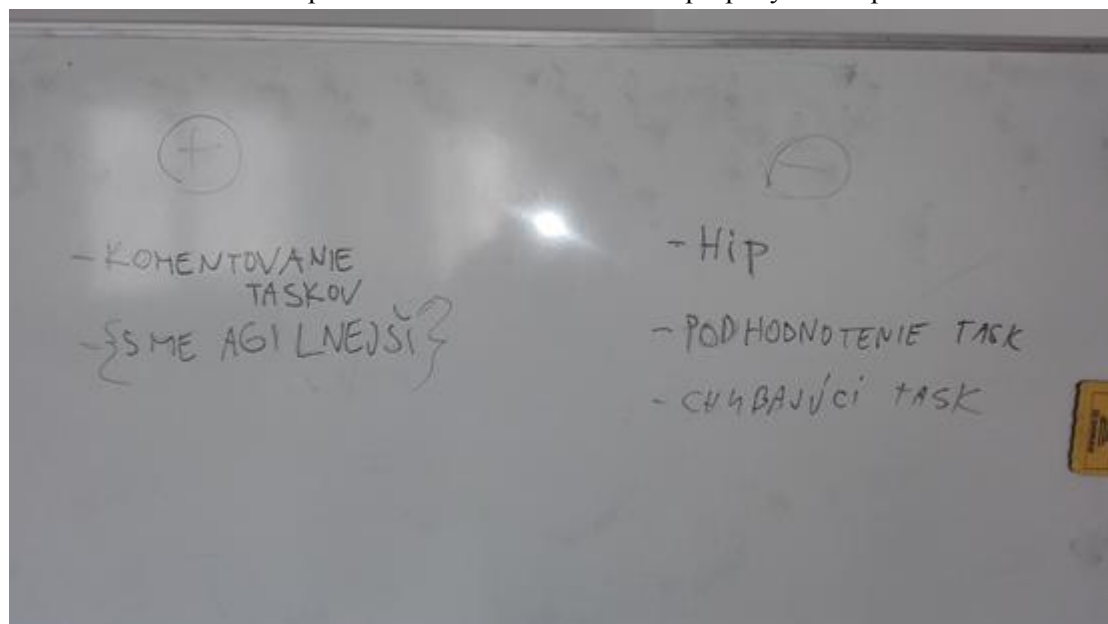 +
- KOMENTOVANIE
TASKOV
- {SME AGILNEJŠÍ}
-
- Hip
- PODHODNOTENIE TASK
- CHYBAJÚCI TASK